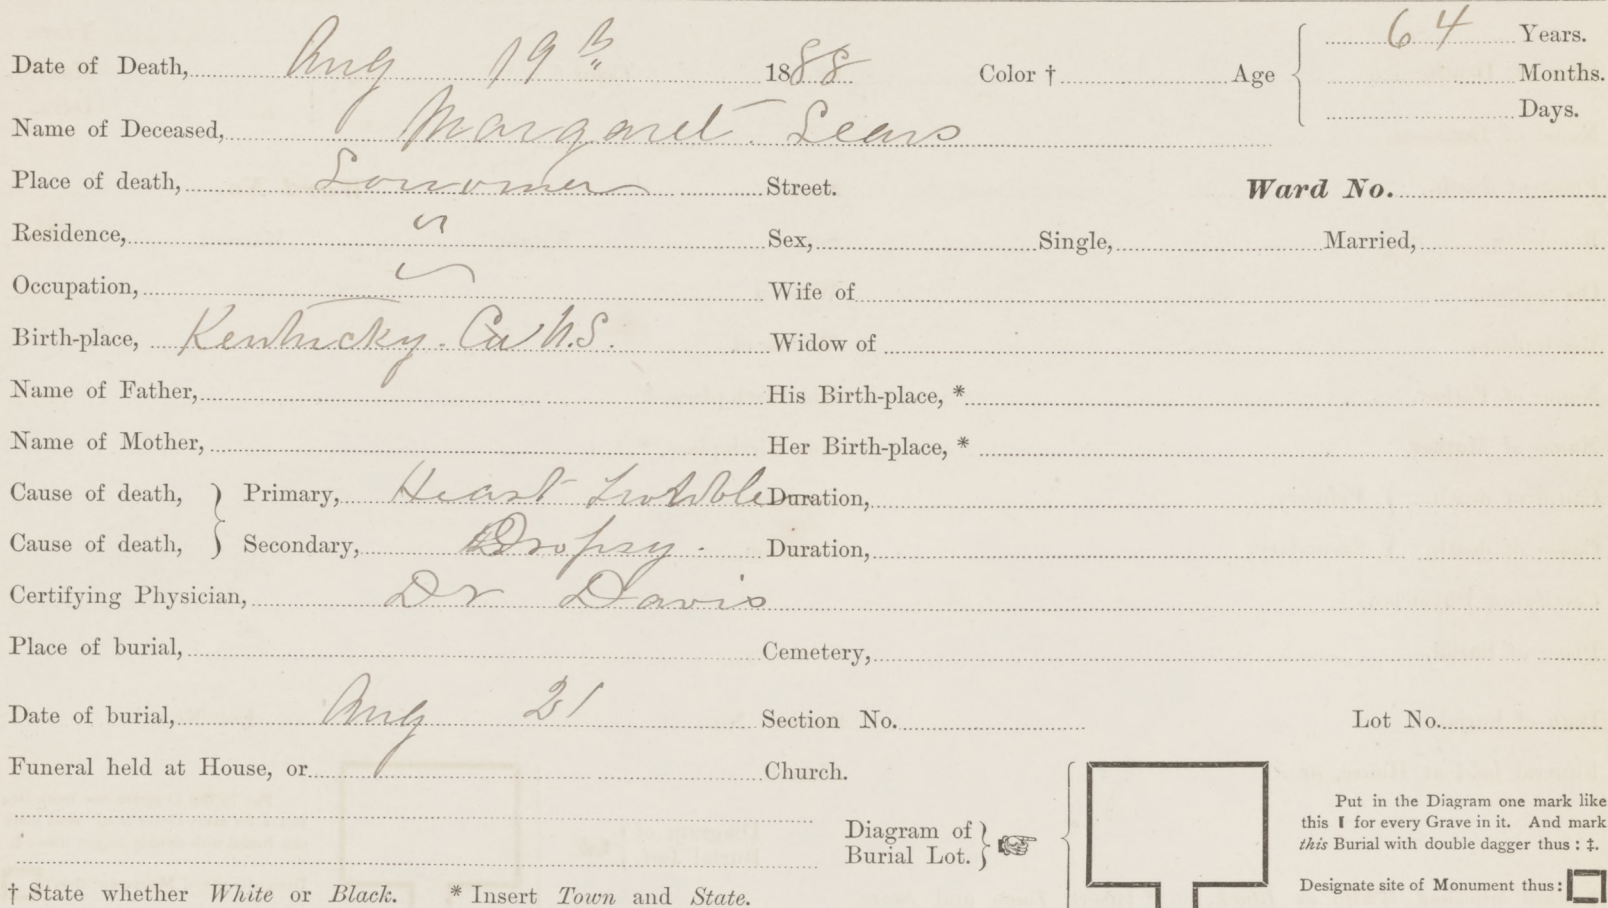 Date of Death, Aug 19th 1888 Color † Age { 64 Years.
Months.
Days.
Name of Deceased, Margaret Sears
Place of death, Street. Ward No.
Residence, " Sex, Single, Married,
Occupation, Wife of
Birth-place, Kentucky. Co U.S. Widow of
Name of Father, His Birth-place, *
Name of Mother, Her Birth-place, *
Cause of death, } Primary, Heart Trouble Duration,
Cause of death, } Secondary, Dropsy. Duration,
Certifying Physician, Dr Davis
Place of burial, Cemetery,
Date of burial, Aug 21 Section No. Lot No.
Funeral held at House, or Church.
Diagram of
Burial Lot. }
Put in the Diagram one mark like
this I for every Grave in it. And mark
this Burial with double dagger thus : ‡.
Designate site of Monument thus :
† State whether White or Black. * Insert Town and State.